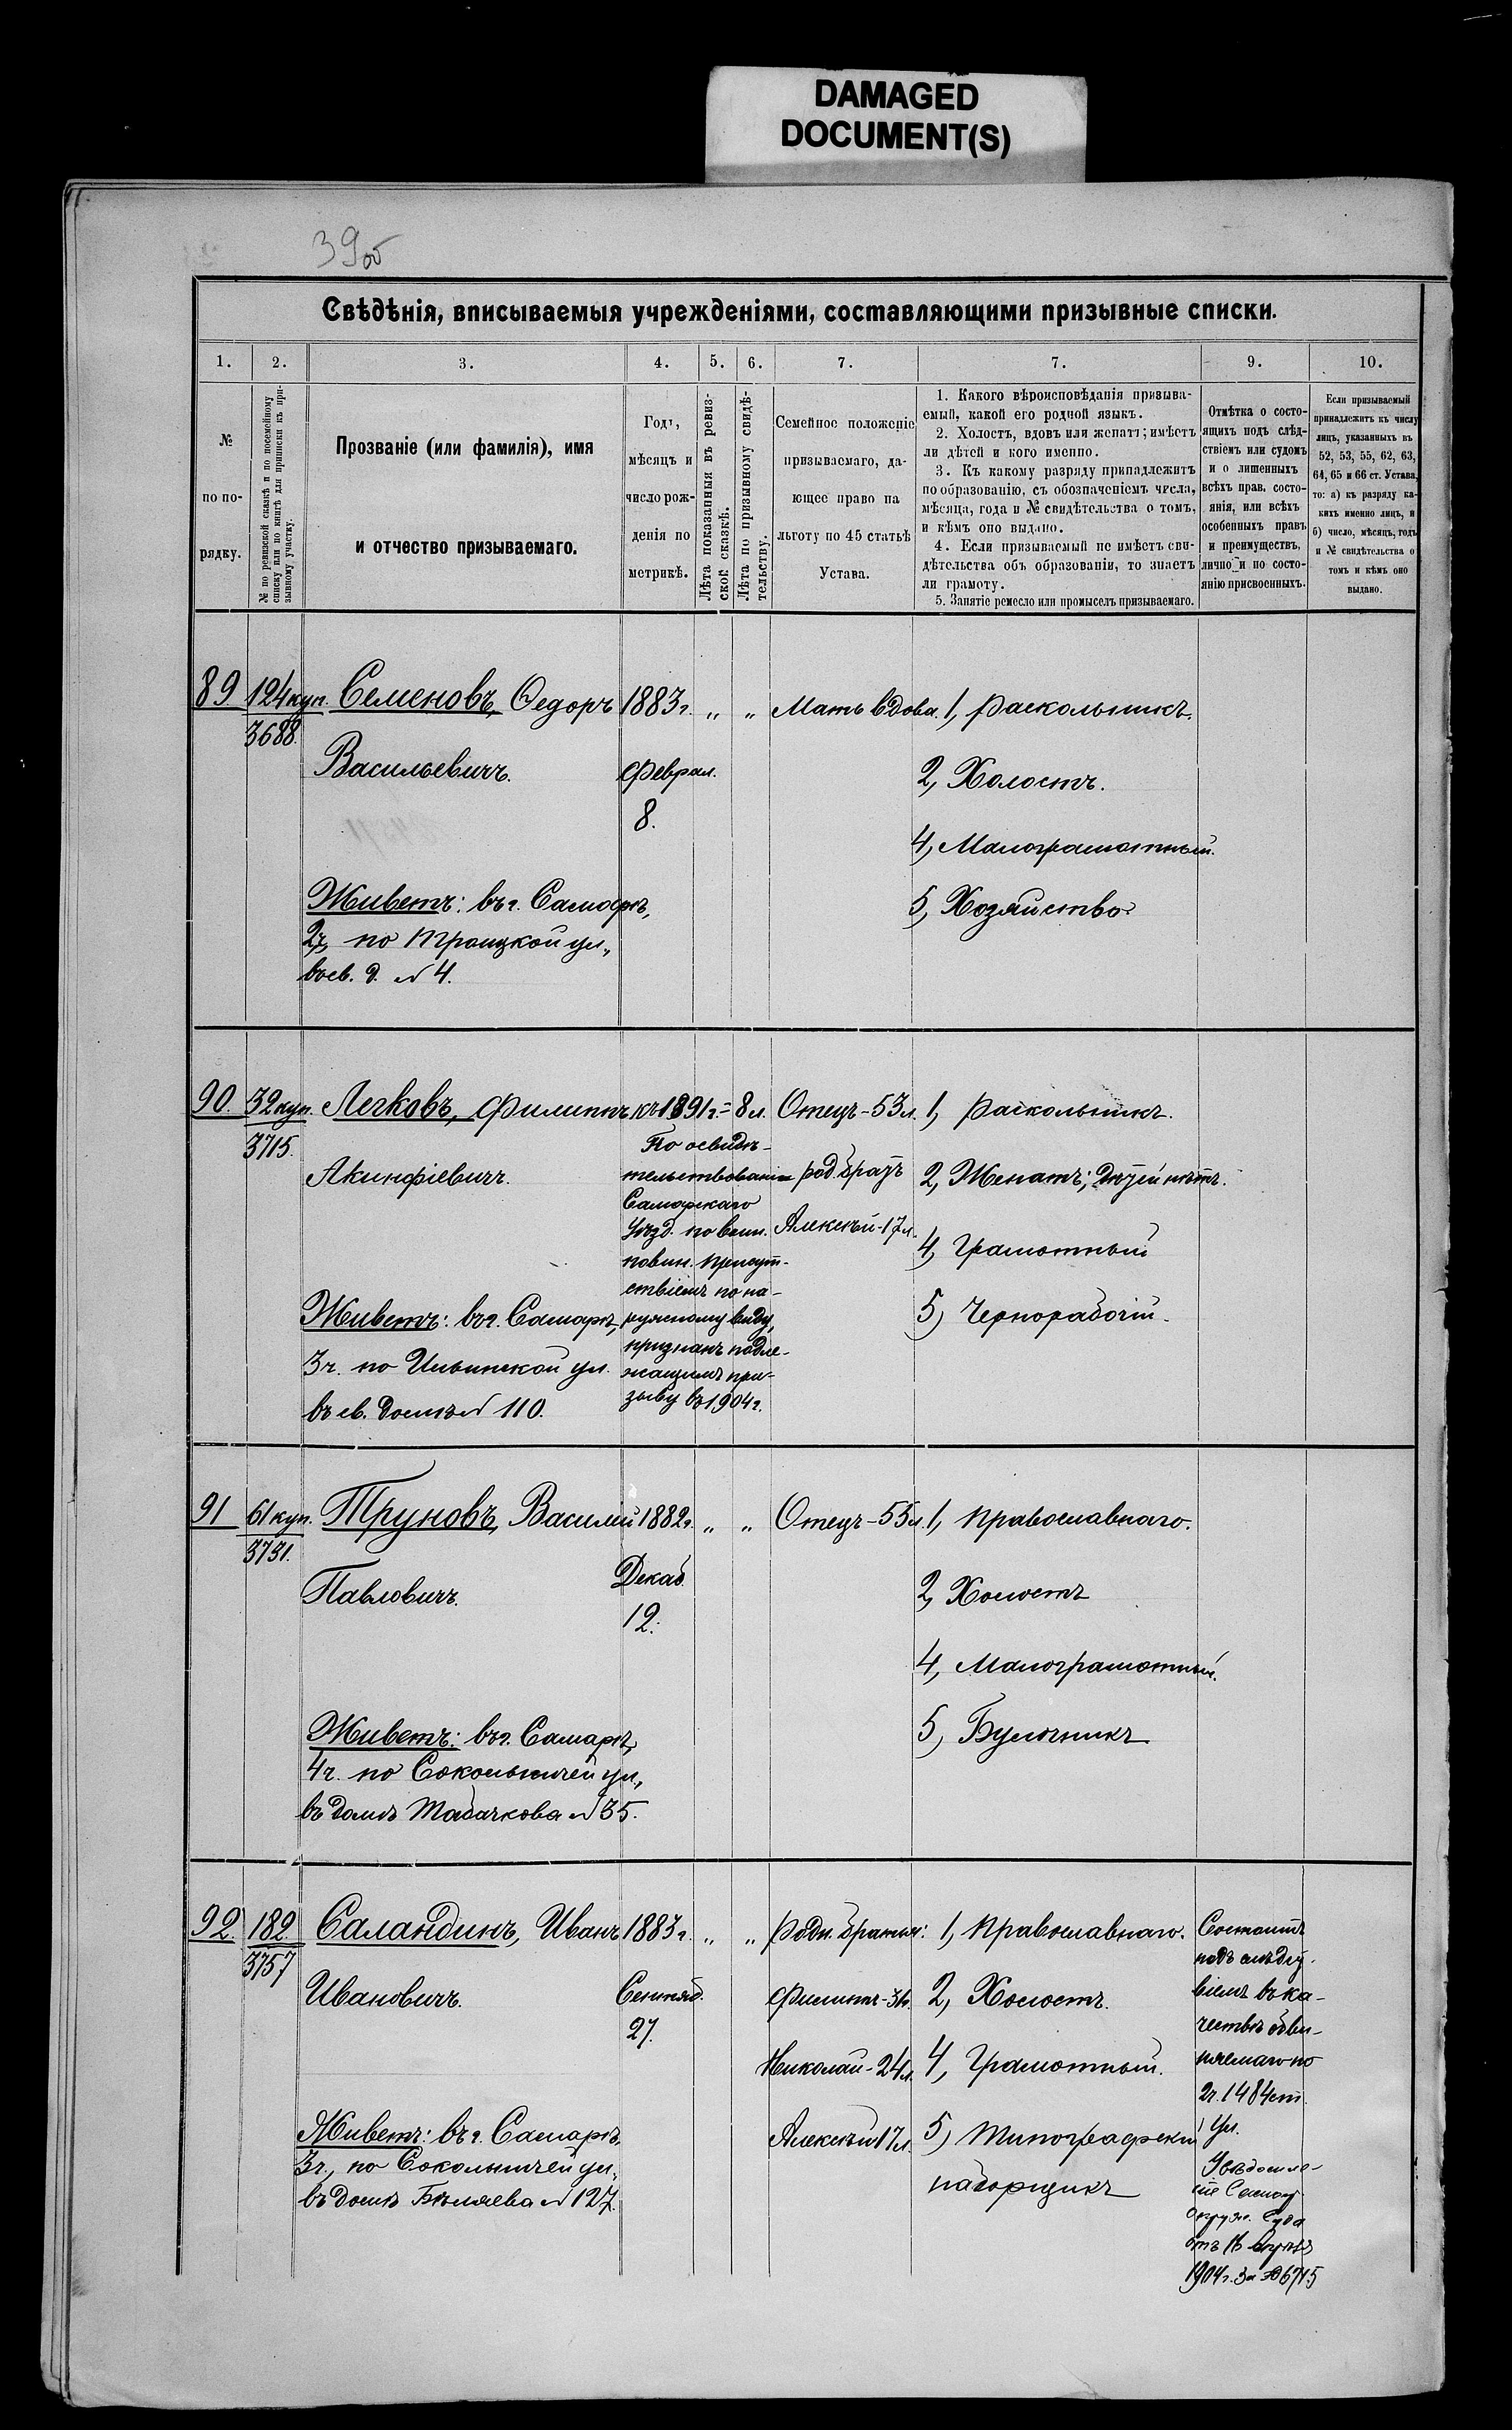 DAMAGED
DOCUMENT(S)
39об
Свѣдѣнія, вписываемыя учрежденіями, составляющими призывные списки.
1. 2. 3. 4. 5. 6. 7. 7. 9. 10.
№
по по-
рядку.
№ по ревизской сказкѣ и по посемейному
списку или по книгѣ для приписки къ при-
зывному участку.
Прозваніе (или фамилія), имя
и отчество призываемаго.
Годъ,
мѣсяцъ и
число рож-
денія по
метрикѣ.
Лѣта показанныя въ ревиз-
ской сказкѣ.
Лѣта по призывному свидѣ-
тельству.
Семейное положеніе
призываемаго, да-
ющее право на
льготу по 45 статьѣ
Устава.
1. Какого вѣроисповѣданія призыва-
емый, какой его родной языкъ.
2. Холостъ, вдовъ или женатъ; имѣетъ
ли дѣтей и кого именно.
3. Къ какому разряду принадлежитъ
по образованію, съ обозначеніемъ числа,
мѣсяца, года и № свидѣтельства о томъ,
и кѣмъ оно выдано.
4. Если призываемый не имѣетъ сви-
дѣтельства объ образованіи, то знаетъ
ли грамоту.
5. Занятіе ремесло или промыселъ призываемаго.
Отмѣтка о состо-
ящихъ подъ слѣд-
ствіемъ или судомъ
и о лишенныхъ
всѣхъ прав. состо-
янія, или всѣхъ
особенныхъ правъ
и преимуществъ,
лично и по состо-
янію присвоенныхъ.
Если призываемый
принадлежитъ къ числу
лицъ, указанныхъ въ
52, 53, 55, 62, 63,
64, 65 и 66 ст. Устава,
то: а) къ разряду ка-
кихъ именно лицъ, и
б) число, мѣсяцъ, годъ
и № свидѣтельства о
томъ и кѣмъ оно
выдано.
89 124 куп. Семеновъ, Ѳедоръ 1883г. „ „ Мать вдова. 1, Раскольникъ.
3688.
Васильевичъ. Феврал. 2, Холостъ.
8.
4, Малограмотный.
Живетъ: въ г. Самарѣ, 5, Хозяйство
2ч, по Троицкой ул.,
въ св. д. № 4.
90. 32 куп. Легковъ, Филиппъ къ 1891г. = 8 л. Отецъ-53л. 1, Раскольникъ.
3715.
Акинфіевичъ.
По освидѣ-
тельствованіи
Самарскаго
Уѣзд. по воин.
повин. присут-
ствіемъ по на-
ружному виду,
признанъ подле-
жащимъ при-
зыву въ 1904г.
род. братъ
Алексѣй-17л.
2, Женатъ; дѣтей нѣтъ.
4, Грамотный
5, Чернорабочій.
Живетъ: въ г. Самарѣ,
3ч. по Ильинской ул.
въ св. домѣ № 110.
91 61 куп. Труновъ, Василій 1882г. „ „ Отецъ-55л. 1, Православнаго.
3731.
Павловичъ. Декаб. 2, Холостъ
12.
4, Малограмотный.
Живетъ: въ г. Самарѣ, 5, Булочникъ
4ч. по Сокольничей ул.,
въ домѣ Табачкова № 35.
92. 182. Саландинъ, Иванъ 1883г. „ „ Родн. братья: 1, Православнаго.
3757
Ивановичъ. Сентяб. Филиппъ-31л. 2, Холостъ.
27.
Николай-24л. 4, Грамотный.
Живетъ: въ г. Самарѣ, Алексѣй 17л. 5, Типографскій
3ч., по Сокольничей ул., наборщикъ
въ домѣ Бѣляева № 127.
Состоитъ
подъ слѣдст-
віемъ въ ка-
чествѣ обви-
няемаго по
2ч. 1484 ст.
Ул.
Увѣдомле-
ніе Самар.
Окруж. Суда
отъ
1904г. за № 6715